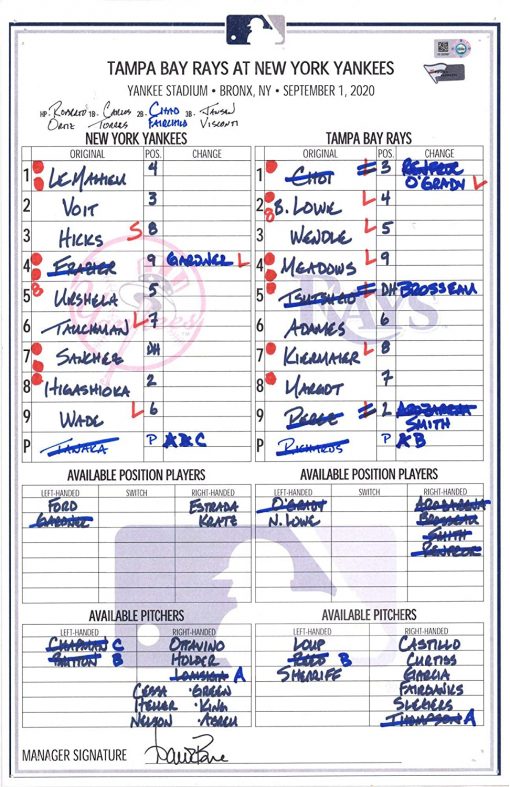 TAMPA BAY RAYS AT NEW YORK YANKEES
YANKEE STADIUM • BRONX, NY • SEPTEMBER 1, 2020
HP- ROBERTO 1B- CARLOS 2B- CHAD 3B- JANSEN
ORTIZ TORRES FAIRCHILD VISCONTI
NEW YORK YANKEES
ORIGINAL POS. CHANGE
1 LEMAHIEU 4
2 VOIT 3
3 HICKS S 8
4 FRAZIER 9 GARDNER L
5 URSHELA 5
6 TAUCHMAN L 7
7 SANCHEZ DH
8 HIGASHIOKA 2
9 WADE L 6
P TANAKA P A B C
TAMPA BAY RAYS
ORIGINAL POS. CHANGE
1 CHOI L 3 RENFROE
O'GRADY L
2 B. LOWE L 4
3 WENDLE L 5
4 MEADOWS L 9
5 TSUTSUGO L DH BROSSEAU
6 ADAMES 6
7 KIERMAIER L 8
8 MARGOT 7
9 PEREZ L 2 AROZARENA
SMITH
P RICHARDS P A B
AVAILABLE POSITION PLAYERS
LEFT-HANDED SWITCH RIGHT-HANDED
FORD ESTRADA
GARDNER KRATZ
AVAILABLE POSITION PLAYERS
LEFT-HANDED SWITCH RIGHT-HANDED
O'GRADY AROZARENA
N. LOWE BROSSEAU
SMITH
RENFROE
AVAILABLE PITCHERS
LEFT-HANDED RIGHT-HANDED
CHAPMAN C OTTAVINO
BRITTON B HOLDER
LOAISIGA A
CESSA • GREEN
HELLER • KING
NELSON • ABREU
AVAILABLE PITCHERS
LEFT-HANDED RIGHT-HANDED
LOUP CASTILLO
REED B CURTISS
SHERRIFF GARCIA
FAIRBANKS
SLEGERS
THOMPSON A
MANAGER SIGNATURE